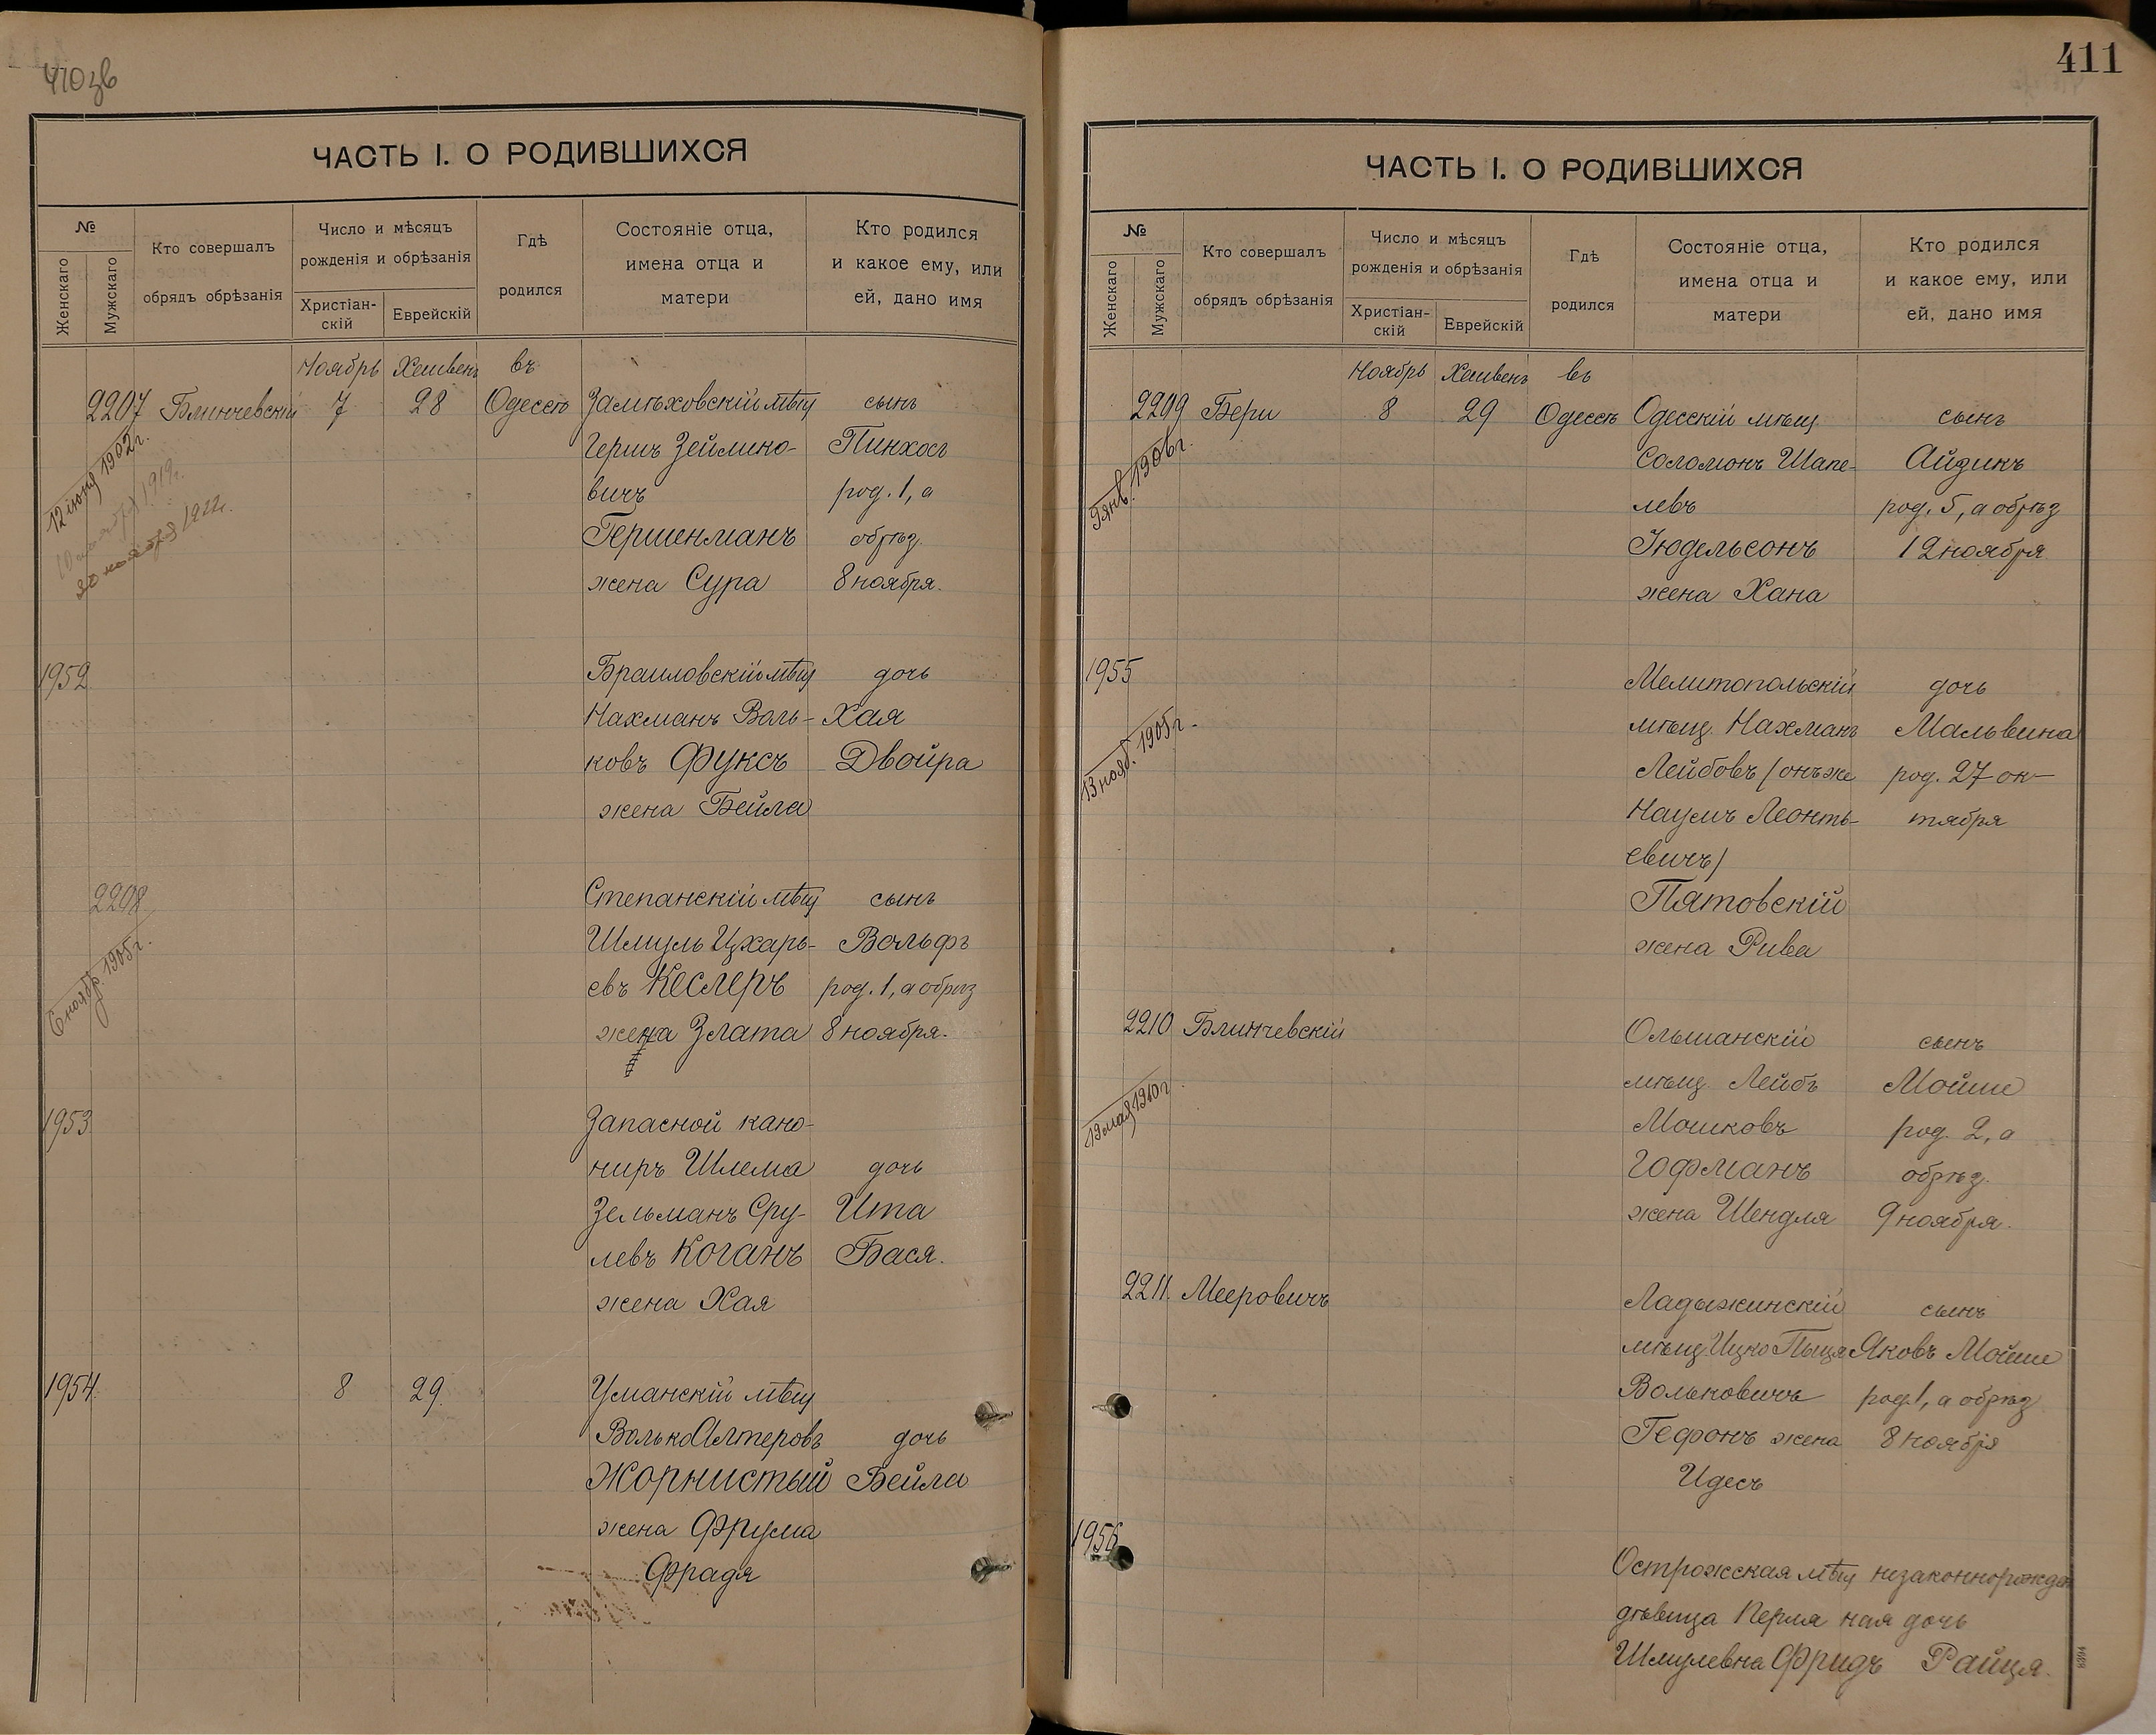 411
ЧАСТЬ I. О РОДИВШИХСЯ
№
Женскаго
Мужскаго
Кто совершалъ
обрядъ обрѣзанія
Число и мѣсяцъ
рожденія и обрѣзанія
Христіан-
скій
Еврейскій
Гдѣ
родился
Состояніе отца,
имена отца и
матери
Кто родился
и какое ему, или
ей, дано имя
Ноябрь Хешвенъ въ
2207 Блинчевскій 7 28 Одессѣ Замѣховскій мѣщ сынъ
12 іюня 1902г.
Гершъ Зейлико- Пинхосъ
вичъ род. 1, а
Гершенманъ обрѣз.
жена Сура 8 ноября.
1952 Браиловскій мѣщ дочь
Нахманъ Воль- Хая
ковъ Фуксъ Двойра
жена Бейла
2208 Степанскій мѣщ сынъ
6 ноябр. 1905г.
Шмуль Цхарь- Вольфъ
евъ Кеслеръ род. 1, а обрѣз
жена Злата 8 ноября.
1953 Запасной кано-
ниръ Шлема дочь
Зельманъ Сру- Ита
левъ Коганъ Бася.
жена Хая
1954 8 29 Уманскій мѣщ
Волько Алтеровъ дочь
Жорнистый Бейла
жена Фрума
Фрадя
ЧАСТЬ I. О РОДИВШИХСЯ
№
Женскаго
Мужскаго
Кто совершалъ
обрядъ обрѣзанія
Число и мѣсяцъ
рожденія и обрѣзанія
Христіан-
скій
Еврейскій
Гдѣ
родился
Состояніе отца,
имена отца и
матери
Кто родился
и какое ему, или
ей, дано имя
Ноябрь Хешвенъ въ
2209 Бери 8 29 Одессѣ Одесскій мѣщ. сынъ
9 янв. 1906г.
Соломонъ Шапе- Айзикъ
левъ род. 5, а обрѣз
Іюдельсонъ 12 ноября
жена Хана
1955 Мелитопольскій дочь
13 нояб. 1905г.
мѣщ. Нахманъ Мальвина
Лейбовъ (онъ же род. 27 ок-
Наумъ Леонть- тября
евичъ)
Пятовскій
жена Рива
2210 Блинчевскій Ольшанскій сынъ
19 мая 1910г
мѣщ. Лейбъ Мойше
Мошковъ род. 2, а
Гофманъ обрѣз.
жена Шендля 9 ноября.
2211. Мееровичъ Ладыжинскій сынъ
мѣщ. Ицко Яковъ Мойше
Вольковичъ род. 1, а обрѣз
Гефонъ жена 8 ноября
Идесъ
1956 Острожская мѣщ незаконнорожден
дѣвица Перля ная дочь
Шмулевна Фридъ Райця.